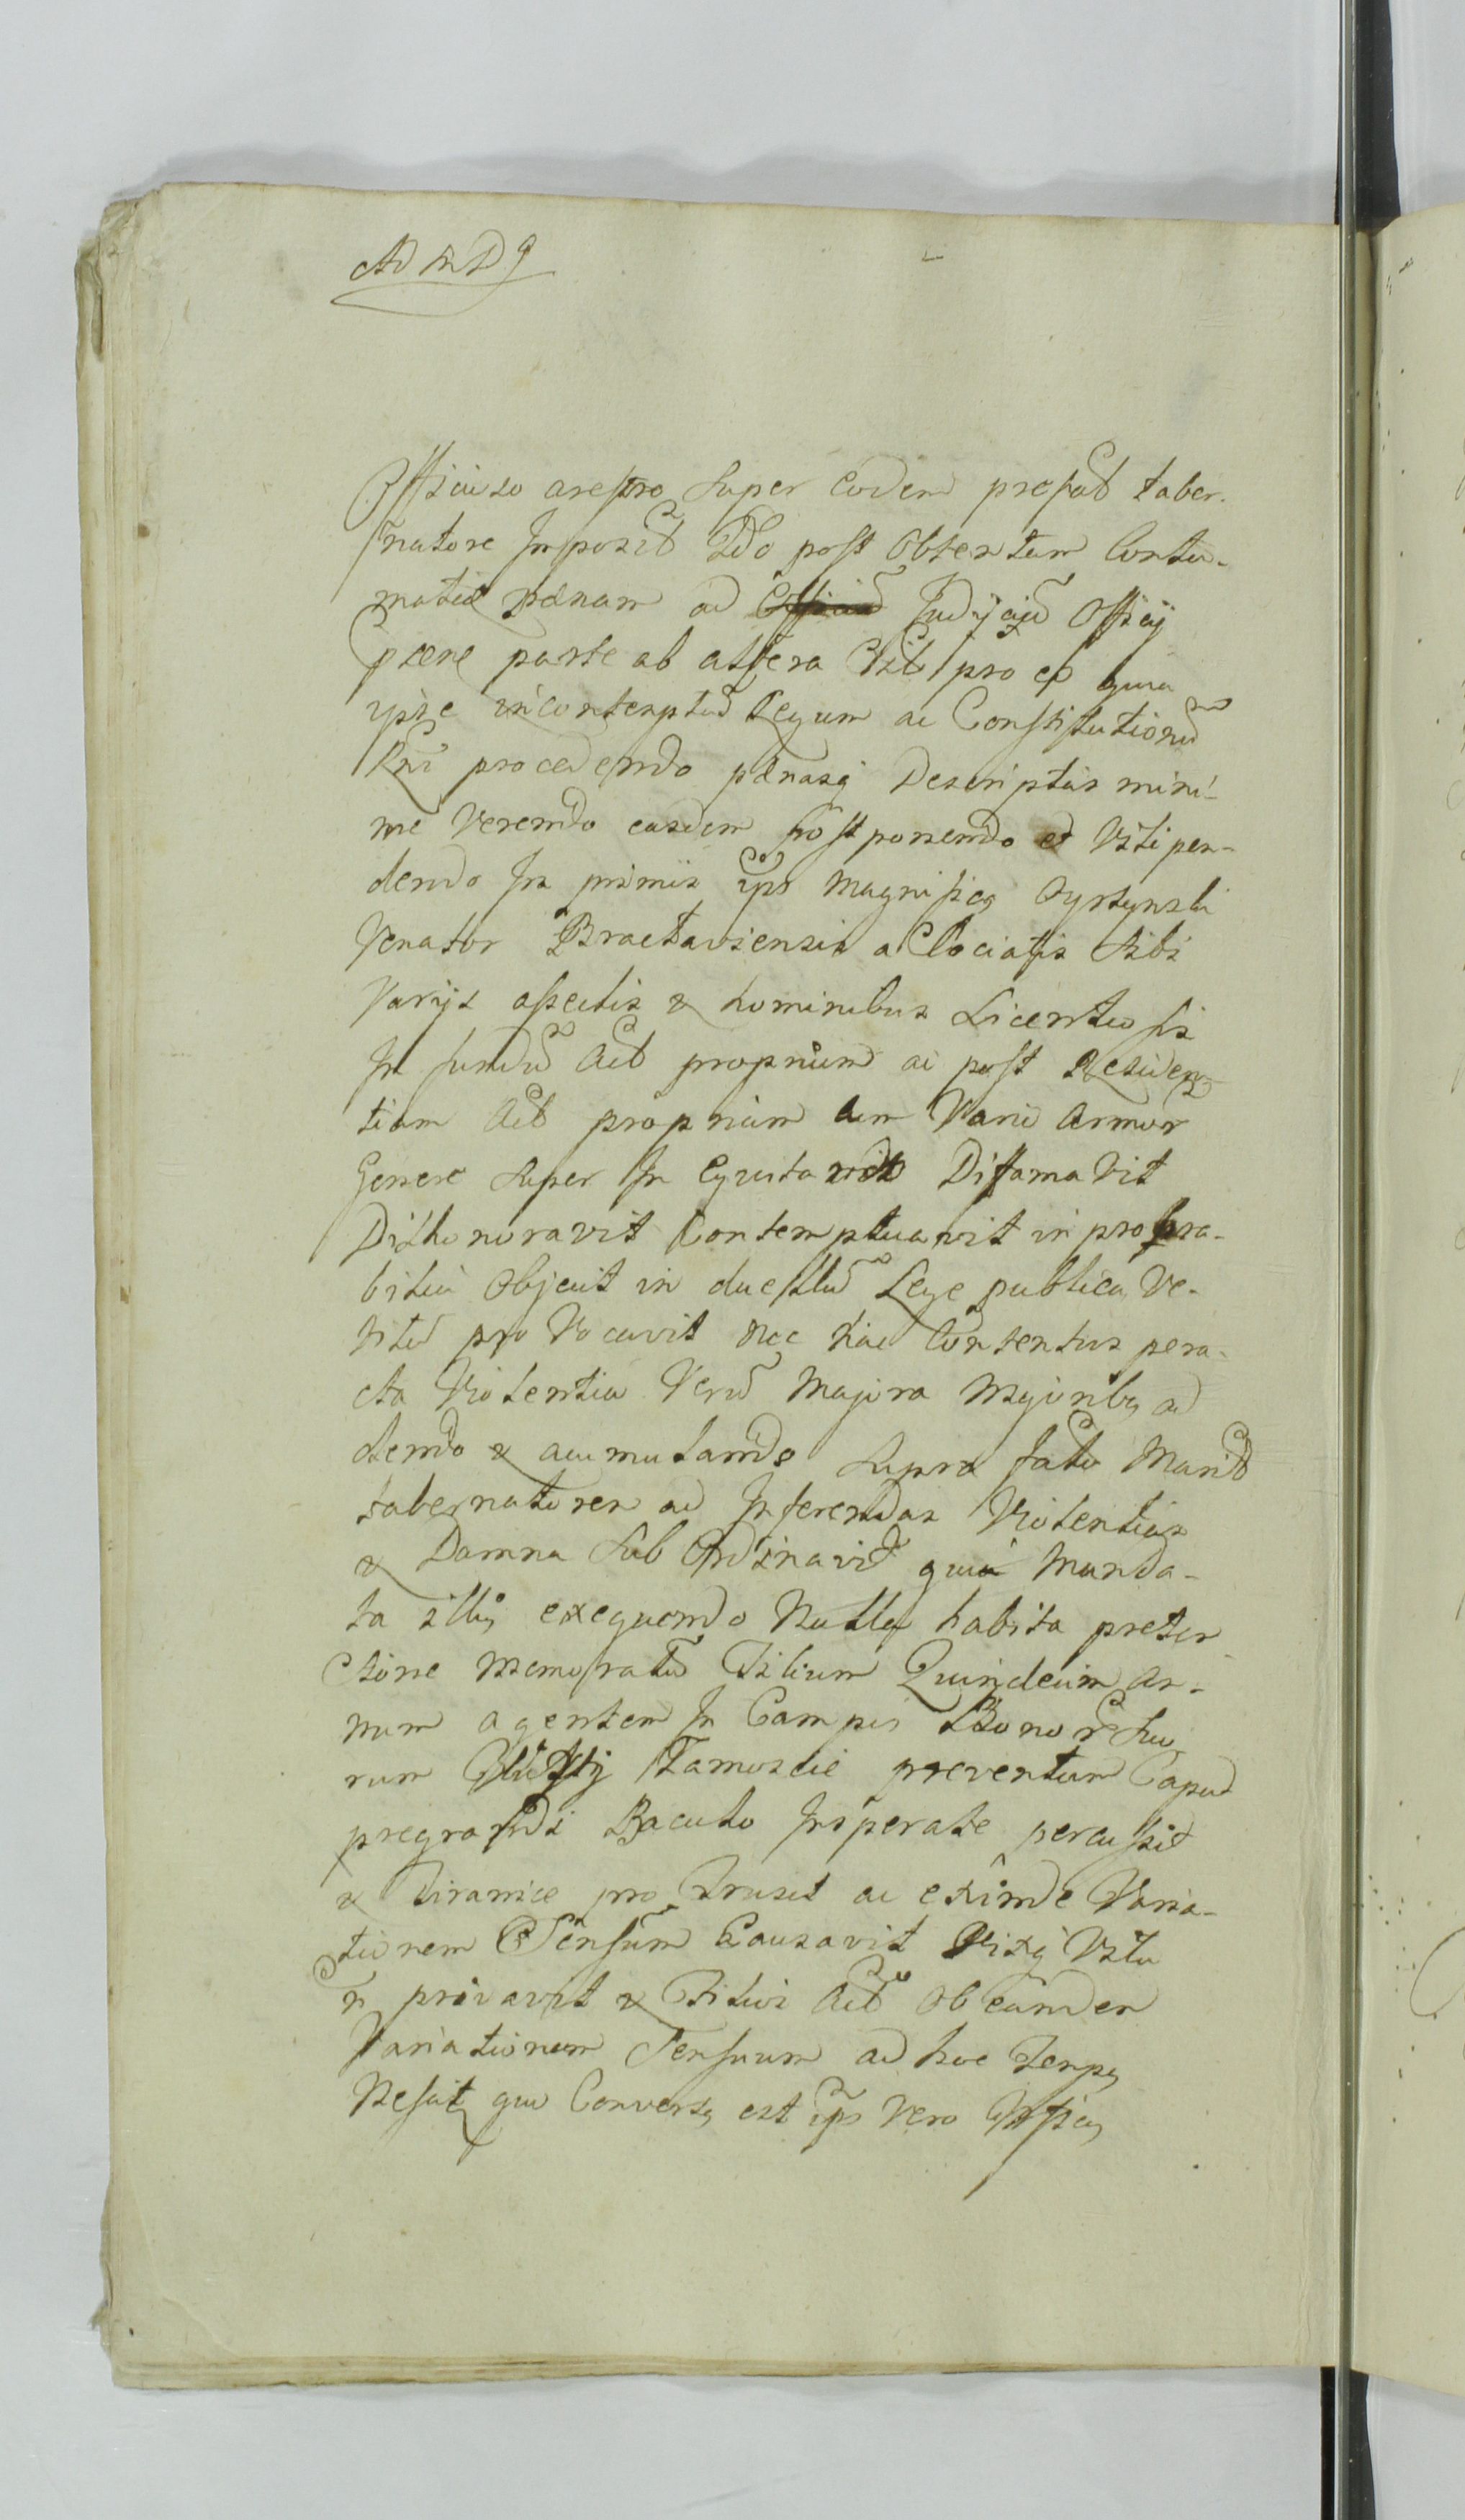 Officioso aresto Super Eodem prefat taber-
natore Imposit Ido post obtentam Contu-
matiæ pænam ad Judicjū Officij
pñtis parte ab altera Citt pro eo quia
ipse in contemptū Legum ac Constitutionū
Rni procedendo pænasq Descriptas mini-
me Verendo easdem post ponendo et Vili pen-
dendo In primis ips Magnificq Orstynski
Venator Bractaviensis associatis Sibi
Varijs asseclis & hominibus Licentiosis
In fundū Act proprium ac post Residen-
tiam Act propriam cum Vario Armor
Genere Super In Equitavit Diffamavit
Dishonoravit Contemptuavit improba-
bilia Objecit in duellū Lege publica Ve-
titū pro Vocavit nec hac Contentus pera-
cta Violentia Verū Majora Majoribq ad
dendo & acumulando Supra fatū Marit
tabernatorem ad Inferendas Violentias
& Damna Sub Ordinavit qui Manda-
ta illiq exequendo Nulla habita preten
sione Memoratū Filium Quindecim an-
num agentem In Campis Bonor Suo
rum Famoscie preventum Caput
pregrandi Baculo Insperate percussit
& Tiranice pro Strusit ac exinde Varia-
tionem Sensum Causavit Vixq Vita
n privavit & Filius Act Ob eandem
Variationem Sensuum ad hoc Tempq
Nescit quo Conversq est ips Vero